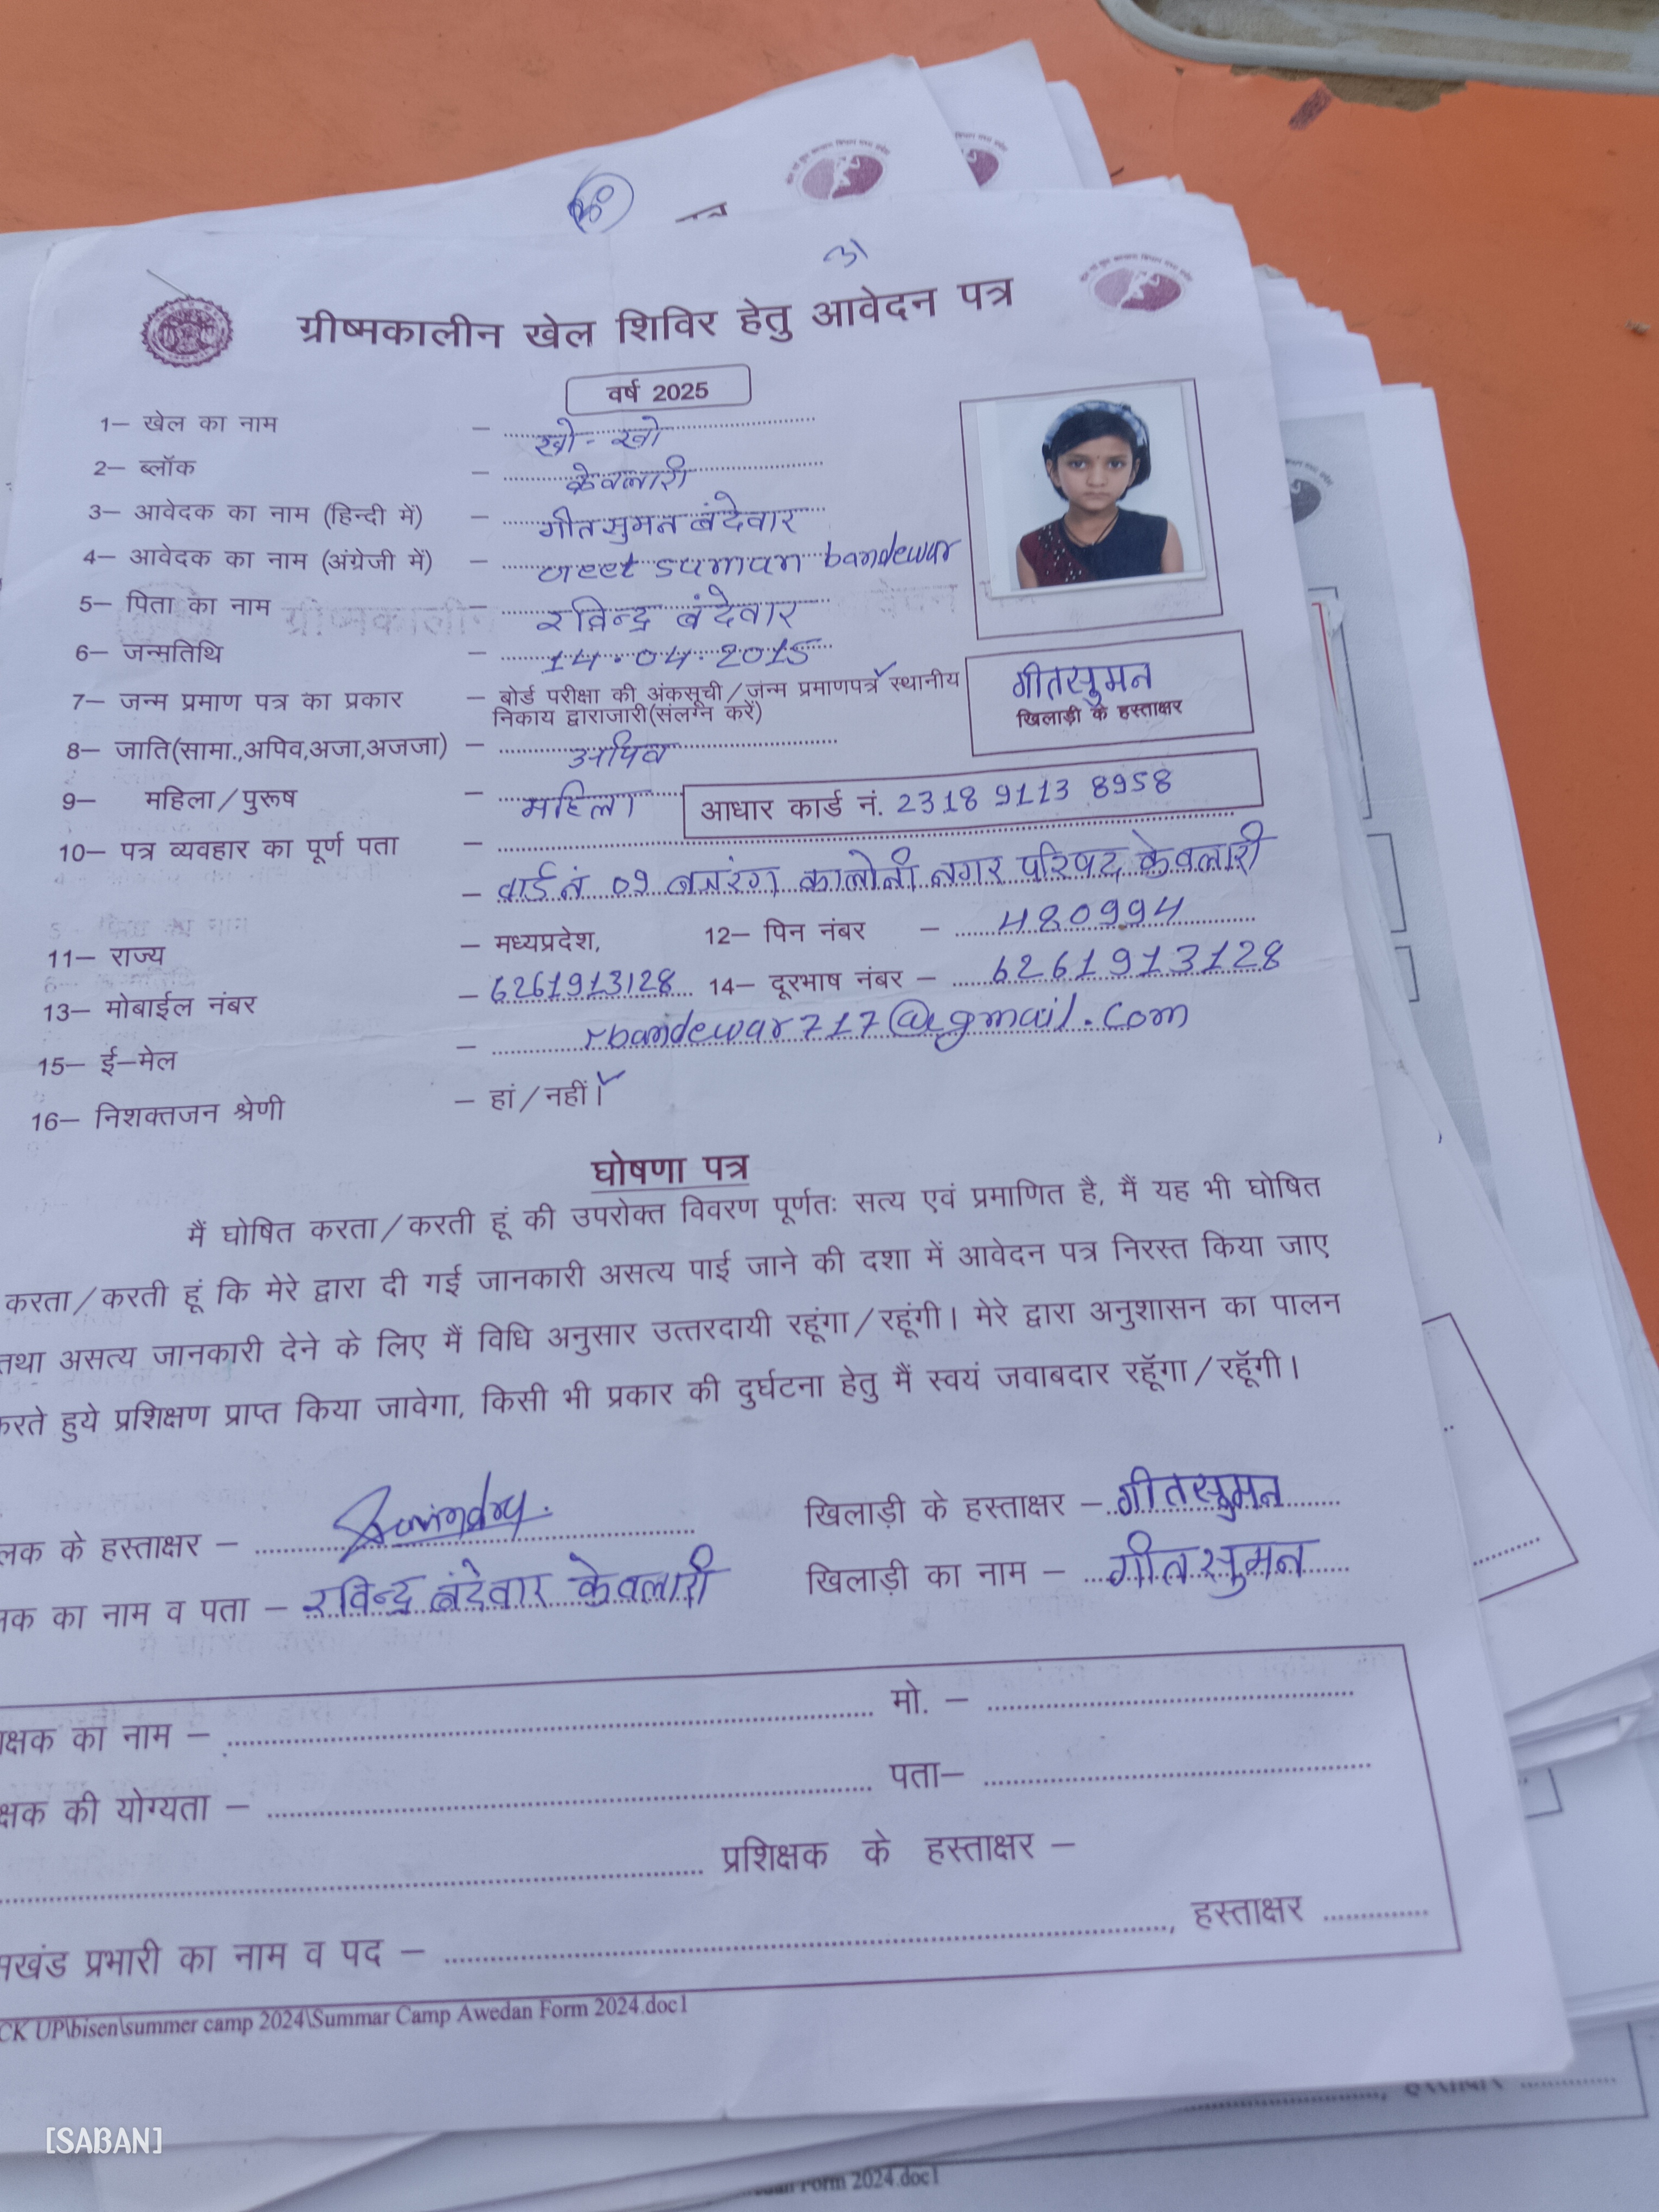 ग्रीष्मकालीन खेल शिविर हेतु आवेदन पत्र
वर्ष 2025
1– खेल का नाम – खो-खो
2– ब्लॉक – केवलारी
3– आवेदक का नाम (हिन्दी में) – गीतसुमन बंदेवार
4– आवेदक का नाम (अंग्रेजी में) – Geet suman bandewar
5– पिता का नाम – रविन्द्र बंदेवार
6– जन्मतिथि – 14.04.2015
7– जन्म प्रमाण पत्र का प्रकार – बोर्ड परीक्षा की अंकसूची/जन्म प्रमाणपत्र स्थानीय
निकाय द्वाराजारी(संलग्न करें)
गीतसुमन
खिलाड़ी के हस्ताक्षर
8– जाति(सामा.,अपिव,अजा,अजजा) – अपिव
9– महिला/पुरूष – महिला आधार कार्ड नं. 2318 9113 8958
10– पत्र व्यवहार का पूर्ण पता –
– वार्ड नं 09 बजरंग कालोनी नगर परिषद केवलारी
11– राज्य – मध्यप्रदेश, 12– पिन नंबर – 480994
13– मोबाईल नंबर – 6261913128 14– दूरभाष नंबर – 6261913128
15– ई–मेल – rbandewar717@gmail.com
16– निशक्तजन श्रेणी – हां/नहीं।
घोषणा पत्र
मैं घोषित करता/करती हूं की उपरोक्त विवरण पूर्णतः सत्य एवं प्रमाणित है, मैं यह भी घोषित
करता/करती हूं कि मेरे द्वारा दी गई जानकारी असत्य पाई जाने की दशा में आवेदन पत्र निरस्त किया जाए
तथा असत्य जानकारी देने के लिए मैं विधि अनुसार उत्तरदायी रहूंगा/रहूंगी। मेरे द्वारा अनुशासन का पालन
करते हुये प्रशिक्षण प्राप्त किया जावेगा, किसी भी प्रकार की दुर्घटना हेतु मैं स्वयं जवाबदार रहूँगा/रहूँगी।
लक के हस्ताक्षर – खिलाड़ी के हस्ताक्षर – गीतसुमन
क का नाम व पता – रविन्द्र बंदेवार केवलारी खिलाड़ी का नाम – गीतसुमन
क्षक का नाम – मो. –
क्षक की योग्यता – पता–
प्रशिक्षक के हस्ताक्षर –
खंड प्रभारी का नाम व पद – , हस्ताक्षर
CK UP\bisen\summer camp 2024\Summar Camp Awedan Form 2024.doc1
Form 2024.doc1
[SABAN]